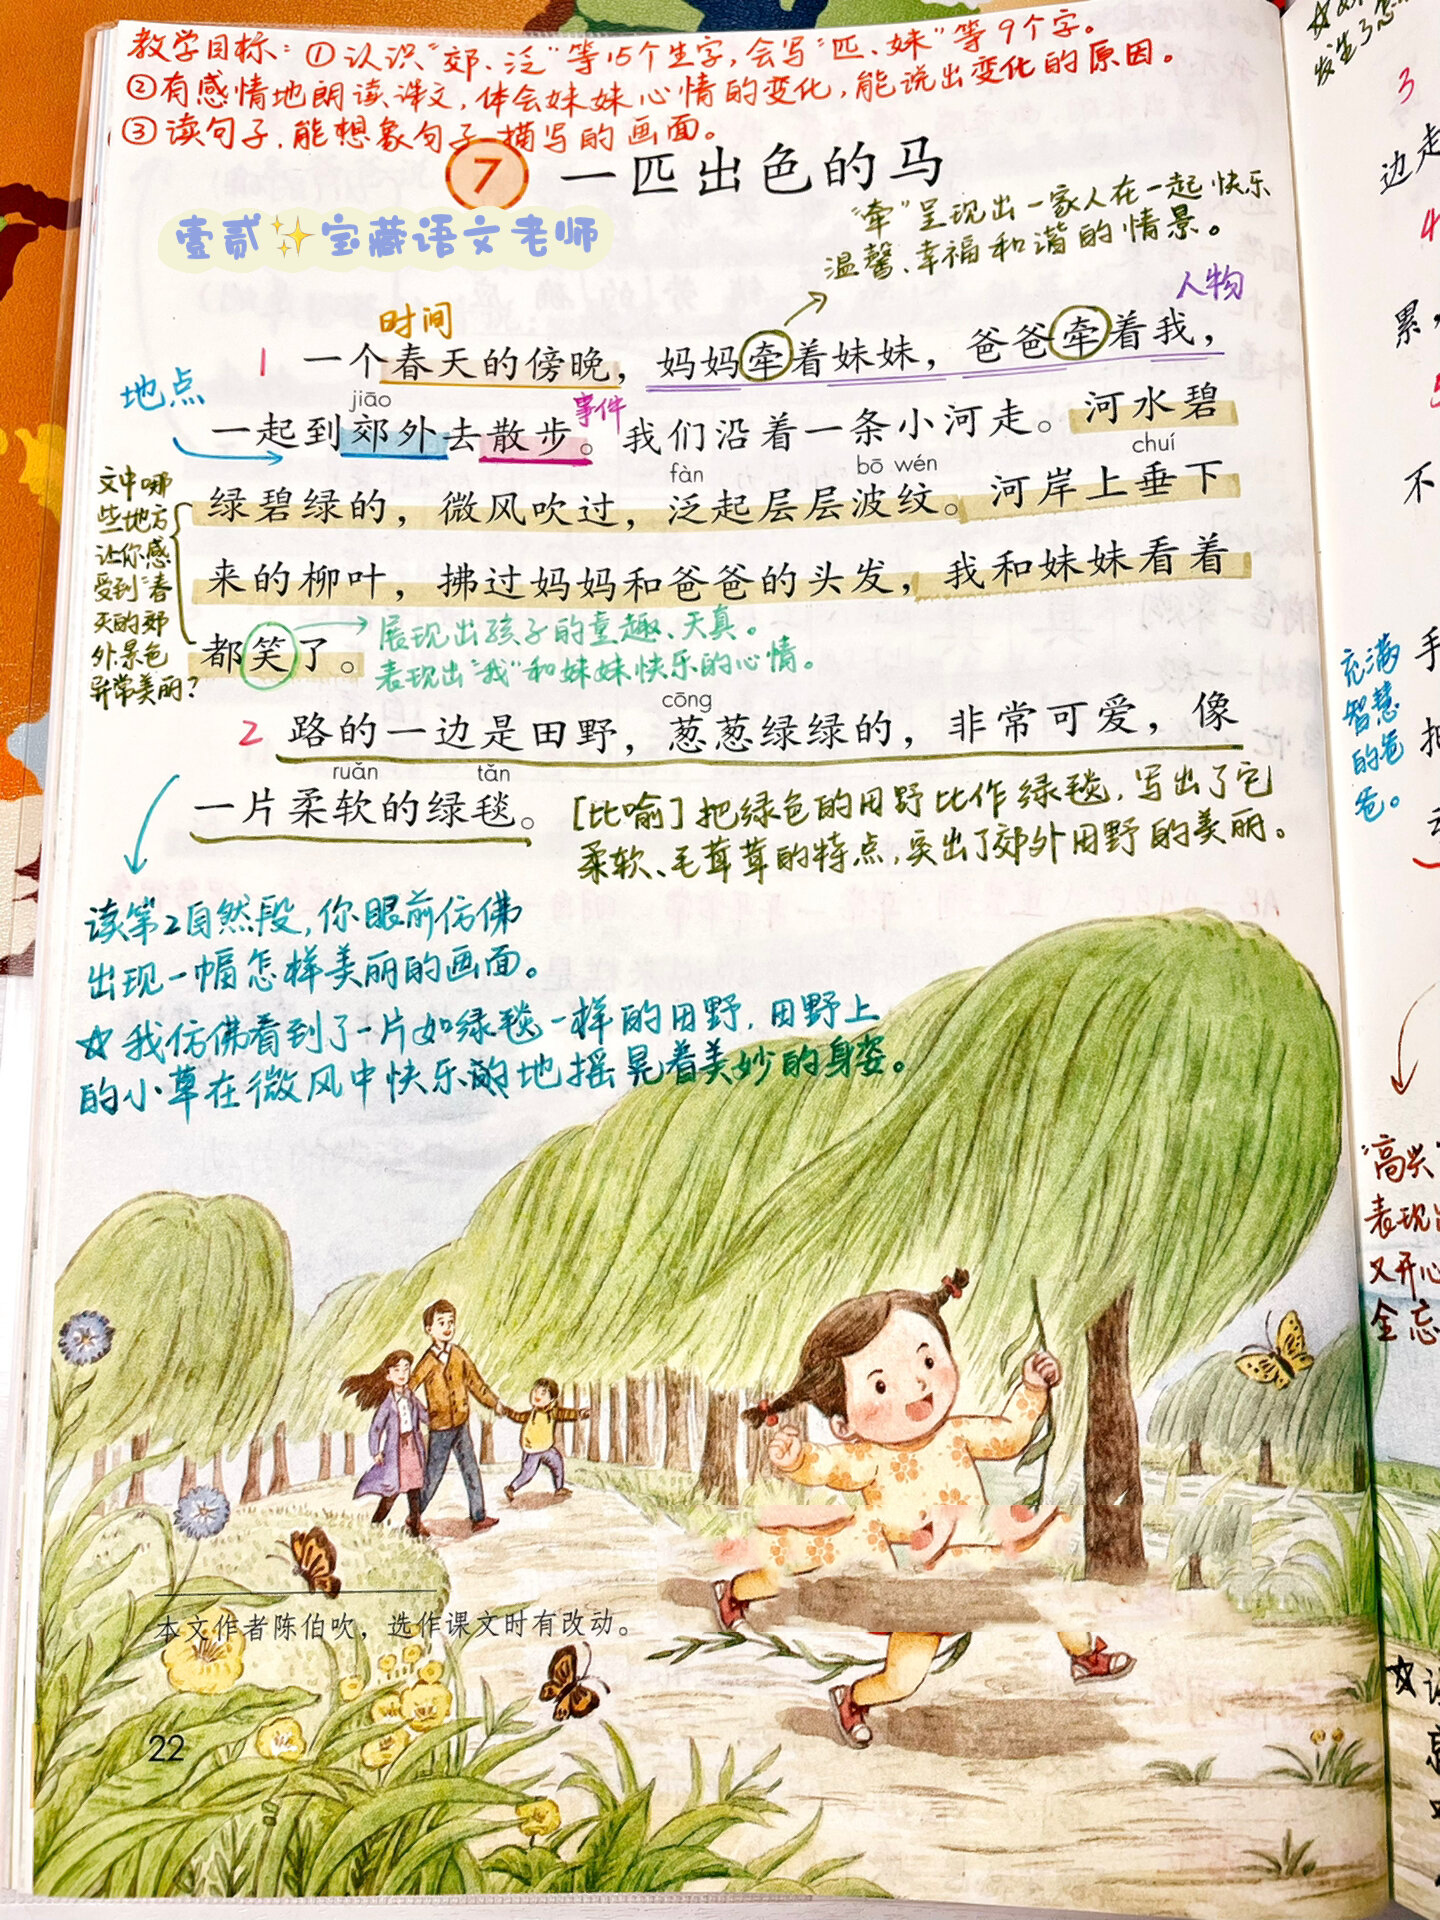 教学目标：①认识“郊、泛”等15个生字，会写“匹、妹”等9个字。
②有感情地朗读课文，体会妹妹心情的变化，能说出变化的原因。
③读句子，能想象句子描写的画面。
7 一匹出色的马
壹贰✨宝藏语文老师
“牵”呈现出一家人在一起快乐
温馨、幸福和谐的情景。
人物
时间
1 一个春天的傍晚，妈妈牵着妹妹，爸爸牵着我，
地点
jiāo
事件
一起到郊外去散步。我们沿着一条小河走。河水碧
fàn bō wén chuí
绿碧绿的，微风吹过，泛起层层波纹。河岸上垂下
来的柳叶，拂过妈妈和爸爸的头发，我和妹妹看着
都笑了。
文中哪
些地方
让你感
受到“春
天的郊
外景色
异常美丽？
展现出孩子的童趣、天真。
表现出“我”和妹妹快乐的心情。
cōng
2 路的一边是田野，葱葱绿绿的，非常可爱，像
ruǎn tǎn
一片柔软的绿毯。
[比喻]把绿色的田野比作绿毯，写出了它
柔软、毛茸茸的特点，突出了郊外田野的美丽。
读第2自然段，你眼前仿佛
出现一幅怎样美丽的画面。
☆我仿佛看到了一片如绿毯一样的田野，田野上
的小草在微风中快乐的地摇晃着美妙的身姿。
本文作者陈伯吹，选作课文时有改动。
22
发生了怎
3
边走
4
累，
5
不
手
充满
智慧
的爸
爸。
“高兴”
表现出
又开心
全忘